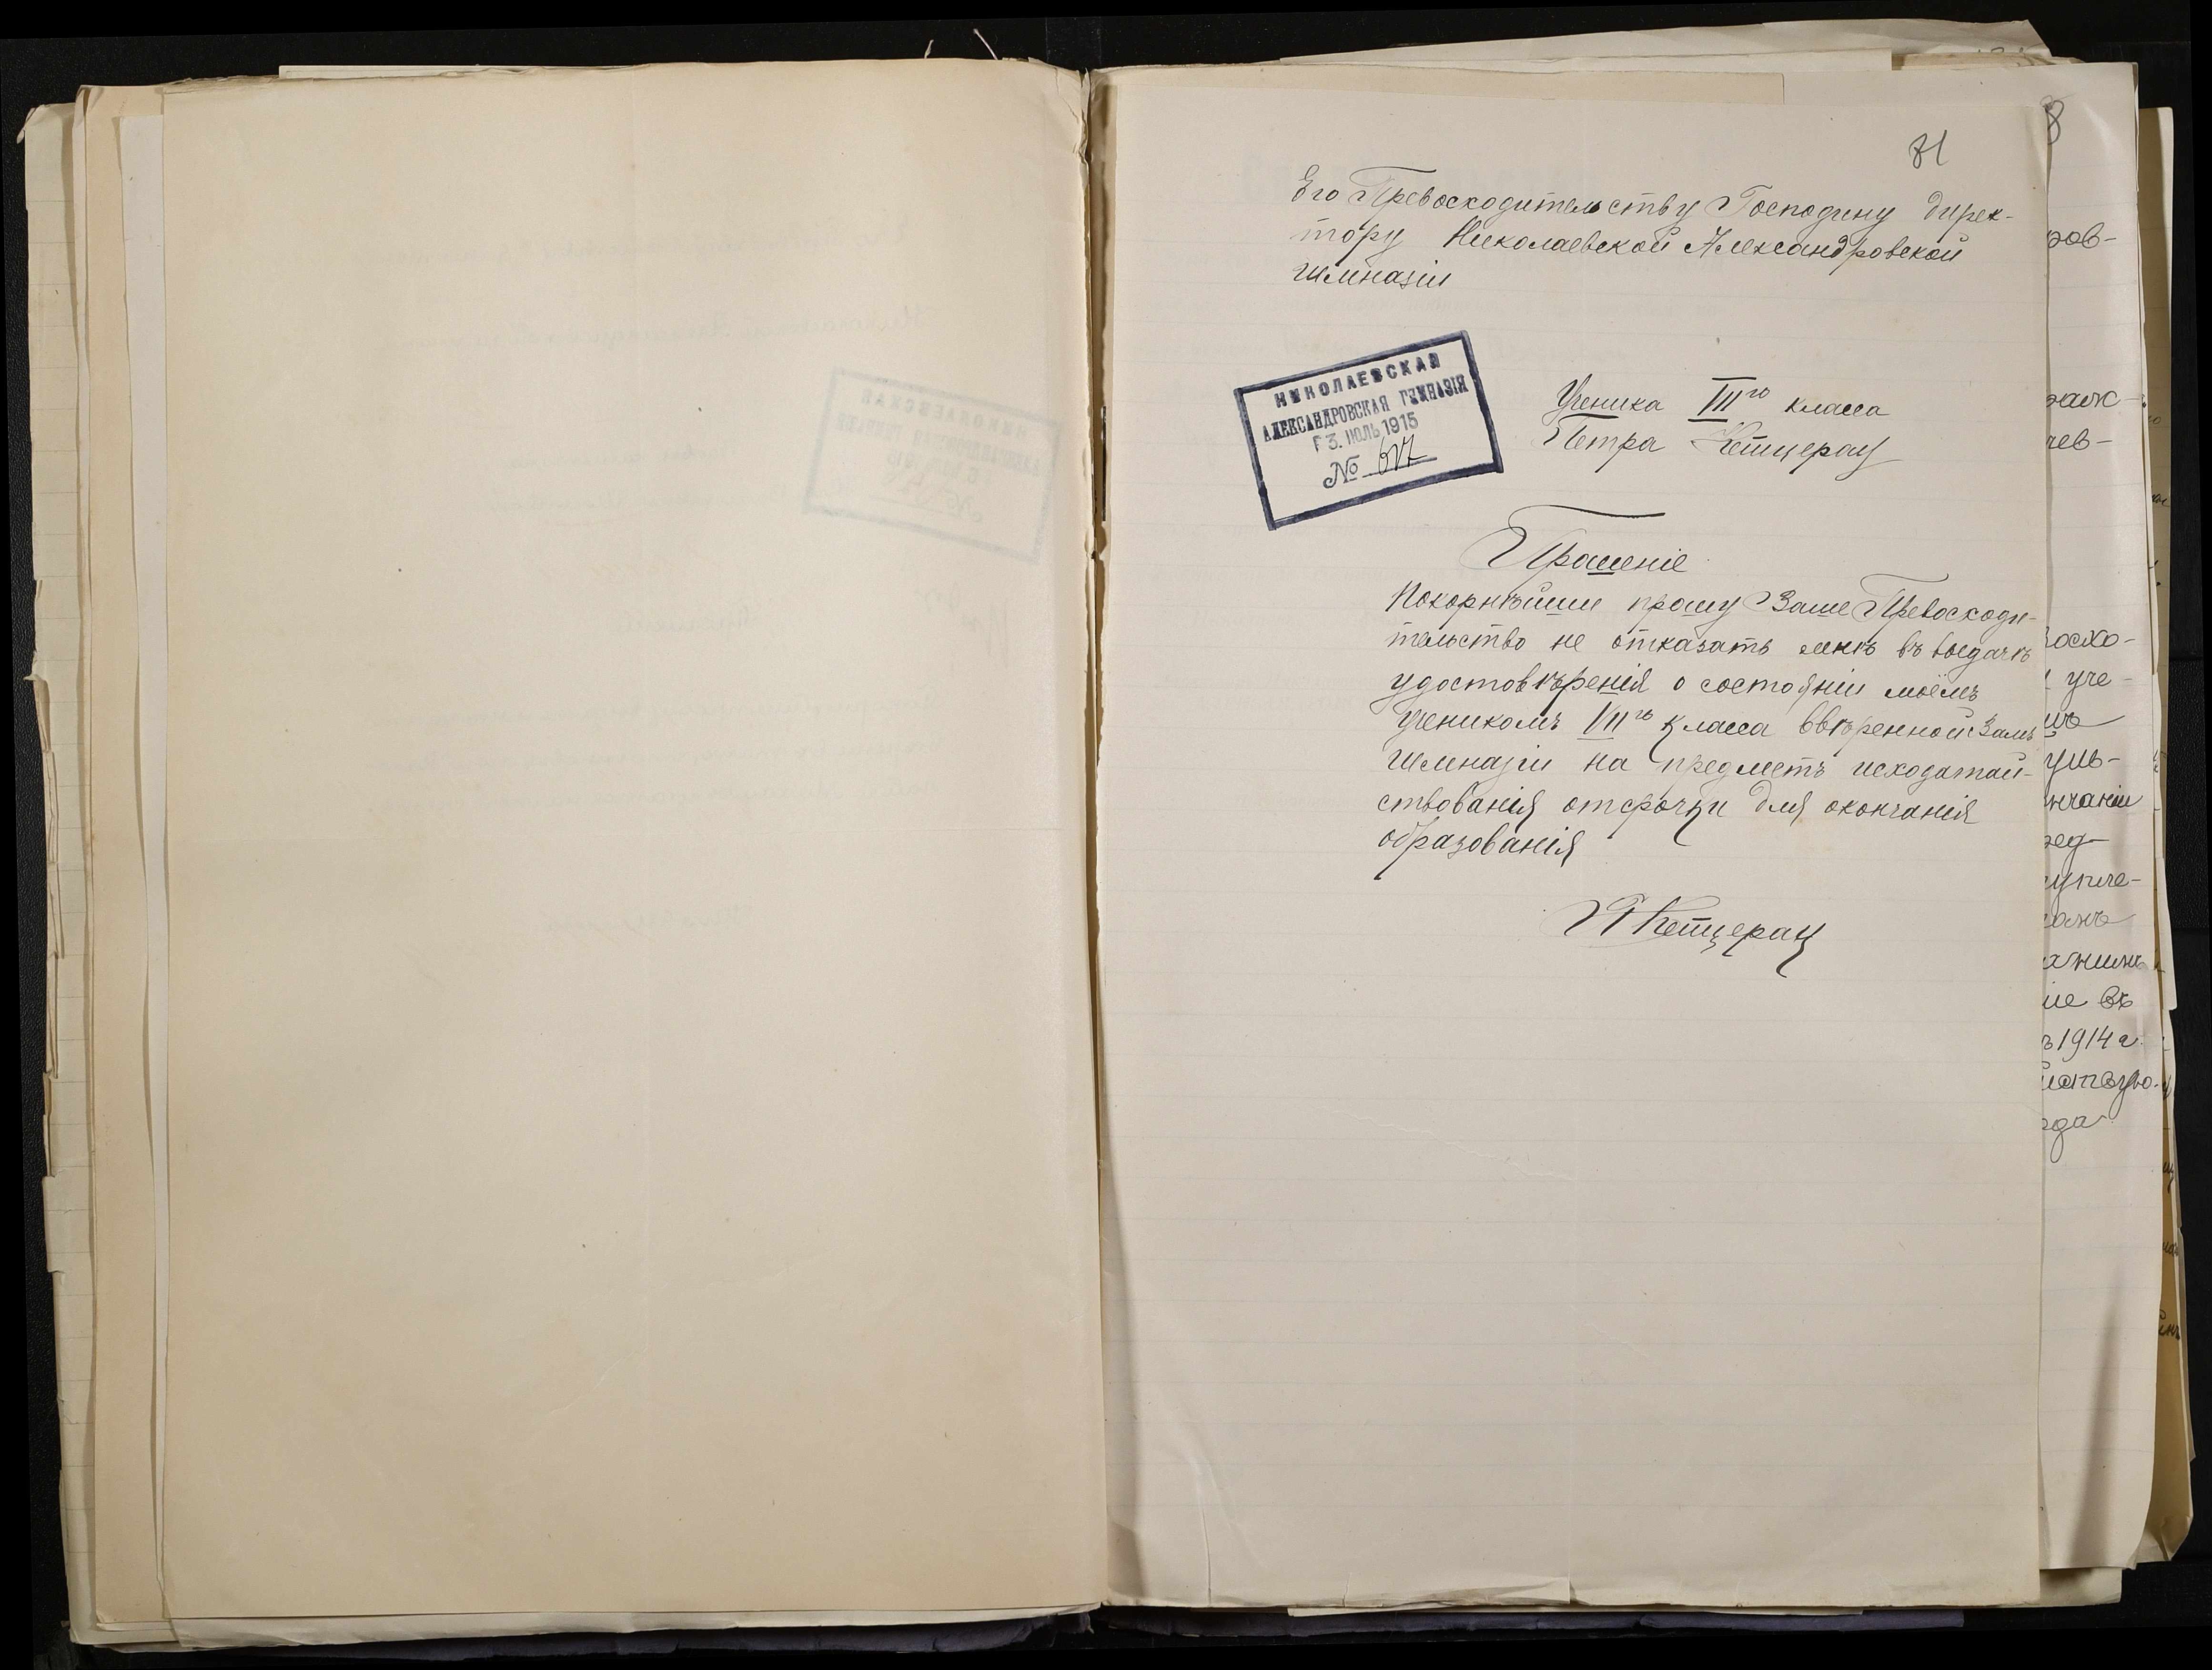 81
Его Превосходительству Господину Дирек-
тору Николаевской Александровской
гимназіи
НИКОЛАЕВСКАЯ
АЛЕКСАНДРОВСКАЯ ГИМНАЗІЯ
3. ІЮЛЬ 1915
№ 617
Ученика VIIго класса
Петра
Прошеніе
Покорнѣйше прошу Ваше Превосходи-
тельство не отказать мнѣ въ выдачѣ
удостовѣренія о состояніи моёмъ
ученикомъ VIIго класса ввѣренной Вамъ
гимназіи на предметъ исходатай-
ствованія отсрочки для окончанія
образованія
8
ров-
чев-
восхо-
уче-
нчаніи
ъ 1914 г.